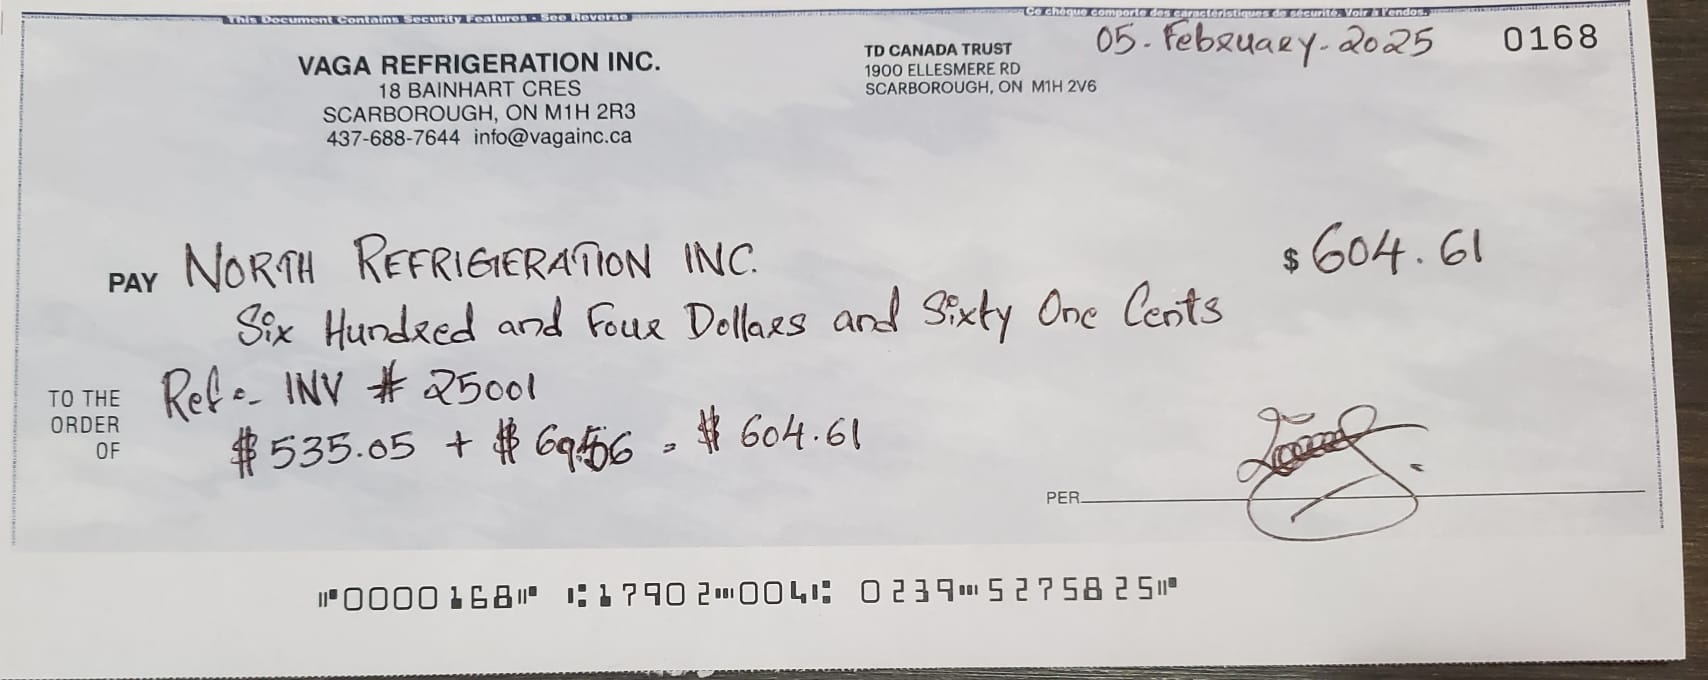 This Document Contains Security Features - See Reverse
Ce chèque comporte des caractéristiques de sécurité. Voir à l'endos.
05. February. 2025
0168
VAGA REFRIGERATION INC.
18 BAINHART CRES
SCARBOROUGH, ON M1H 2R3
437-688-7644 info@vagainc.ca
TD CANADA TRUST
1900 ELLESMERE RD
SCARBOROUGH, ON M1H 2V6
PAY NORTH REFRIGERATION INC.
$ 604.61
Six Hundred and Four Dollars and Sixty One Cents
TO THE
ORDER
OF
Ref:- INV # 25001
$ 535.05 + $ 69.56 = $ 604.61
PER
⑈0000168⑈ ⑆17902⑉004⑆ 0239⑉5275825⑈